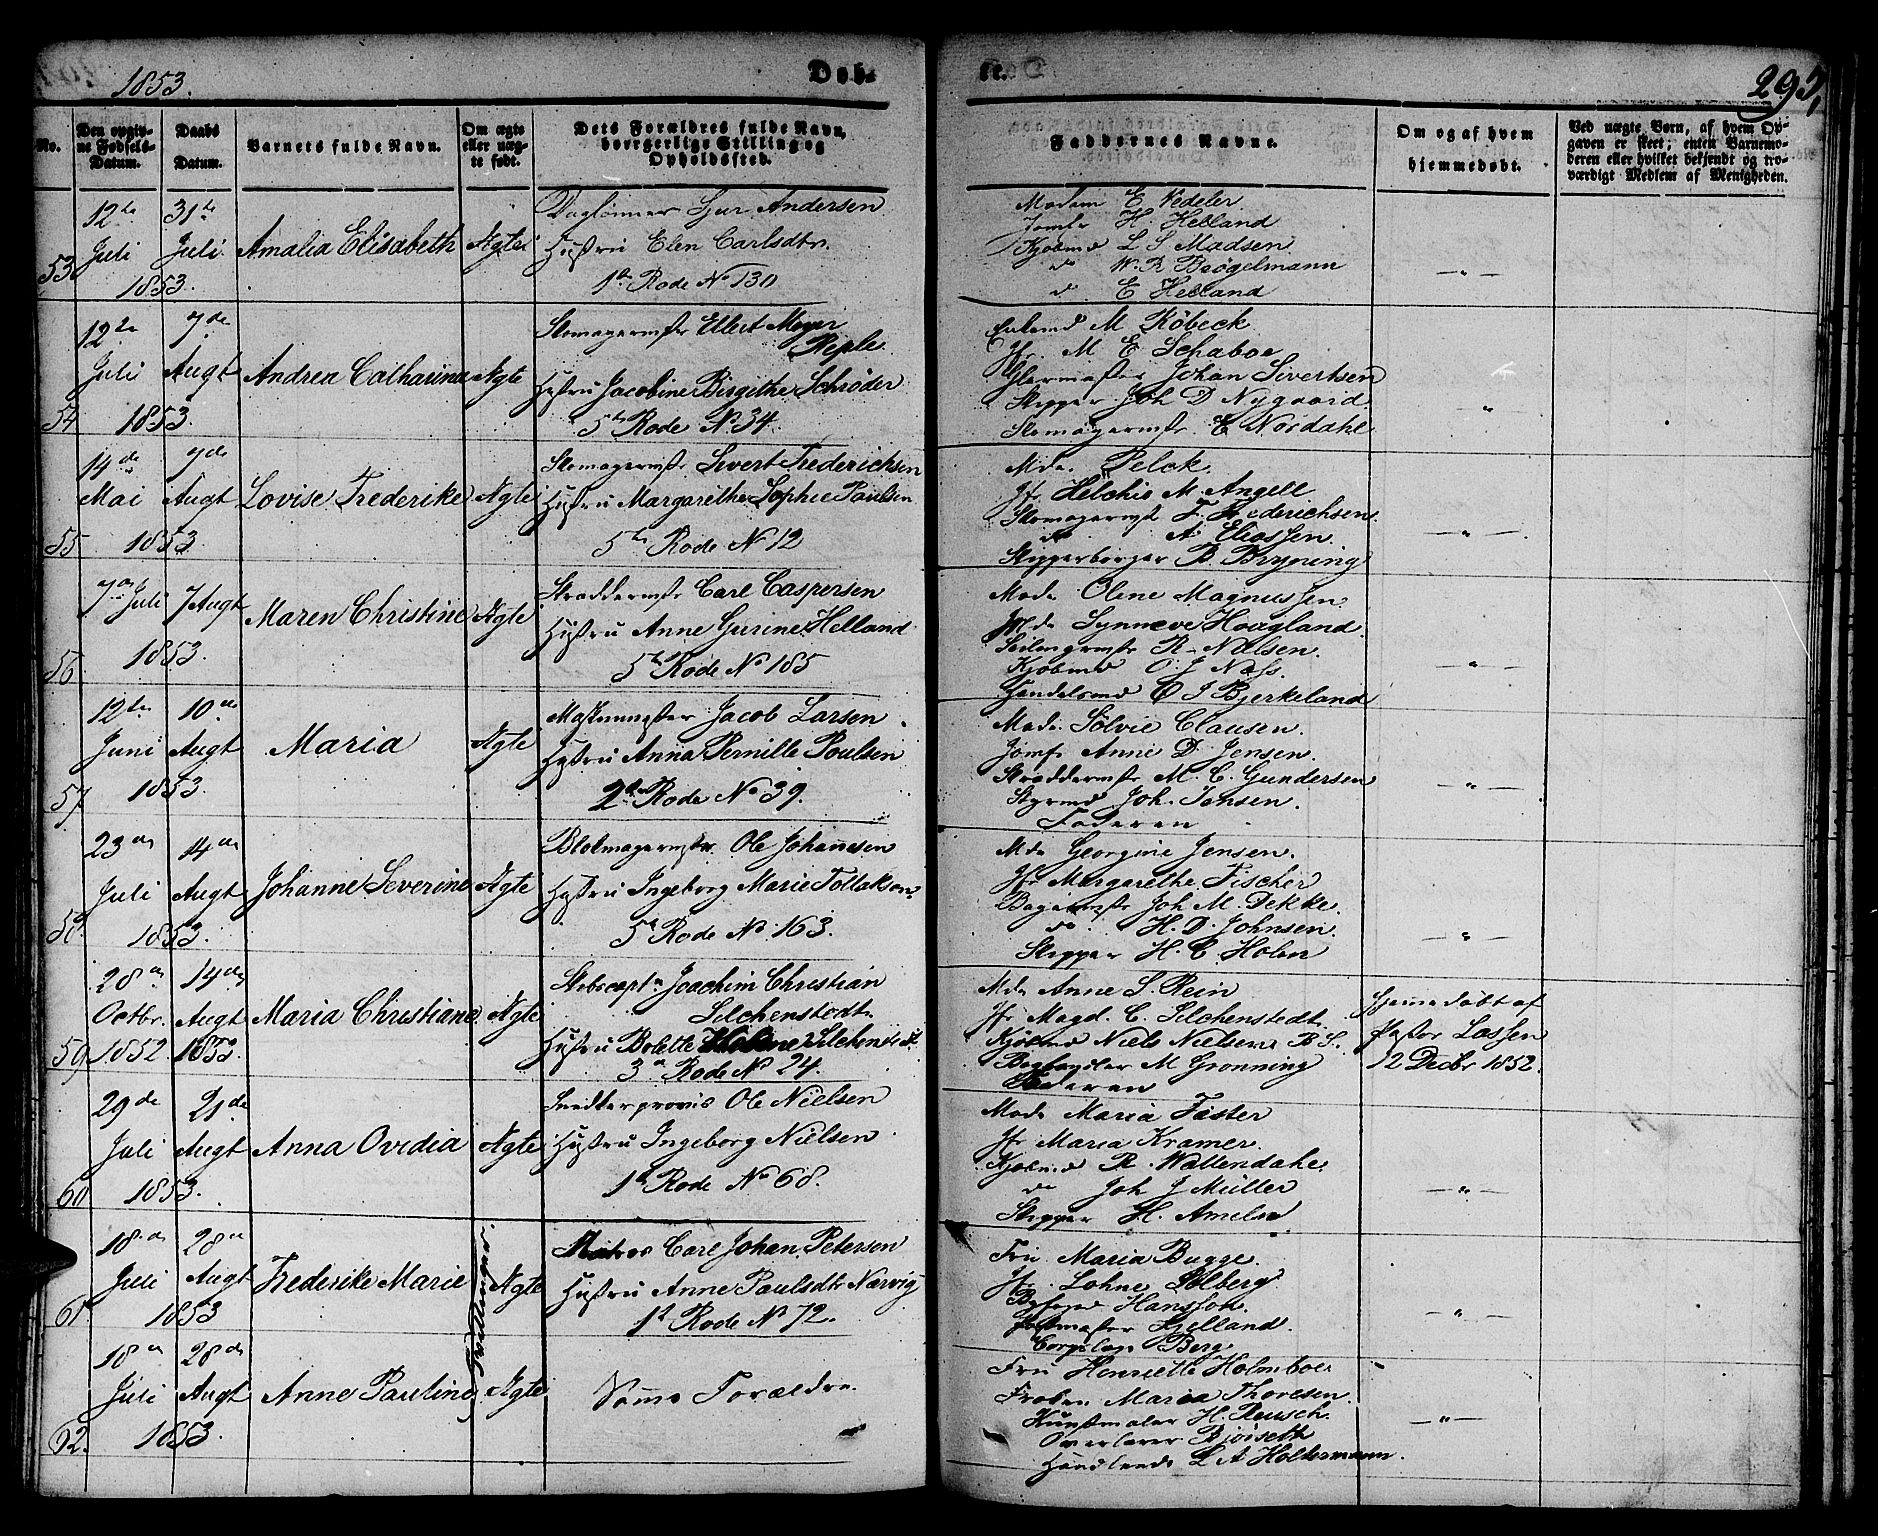 1853.
Døb-
te.
293,
No.
Den opgiv-
ne Fødsels-
Datum.
Daabs
Datum.
Barnets fulde Navn.
Om ægte
eller uæg-
te født.
Dets Forældres fulde Navn,
borgerlige Stilling og
Opholdssted.
Faddernes Navne.
Om og af hvem
hjemmedøbt.
Ved uægte Børn, af hvem Op-
gaven er skeet; enten Barnemo-
deren eller hvilket bekjendt og tro-
værdigt Medlem af Menigheden.
53
12te Juli 1853
31te Juli
Amalia Elisabeth
Ægte
Daglønner Sjur Andersen
Hustru Elen Carlsdtr.
1te Rode No 130
Madam E Nedeler
Jomfr H. Helland
Kjøbmd L S Madsen
do W. R Brøgelmann
do E Helland
— " —
54
12te Juli 1853
7de Augt
Andrea Catharina
Ægte
Skomagermstr Ellert Meyer
Reple
Hustru Jacobine Birgithe Schrøder
5te Rode No 34.
M Købeck
Jfr. M E Schaboe
Glarmester Johan Sivertsen
Skipper Joh D Nygaard
Skomagermstr. E Nordahl
— " —
55
14de Mai 1853
7de Augt
Lovise Frederike
Ægte
Skomagermstr Sivert Frederichsen
Hustru Margarethe Sophie Paulsen
5te Rode No 12
Mde. Pelck.
Jfr Helchis M. Angell
Skomagermst F. Frederichsen
do A Eliassen.
Skipperborger B Bryning
— " —
56
7de Juli 1853.
7 Augt
Maren Christine
Ægte
Skræddermstr Carl Caspersen
Hustru Anne Gurine Helland
5te Rode No 185
Mads Oline Magnussen
Mde Synneve Houglend
Seilmgrmstr R. Nilsen.
Kjøbmd O J Næss.
Handelsmd O J Bjerkeland
— " —
57
12te Juni 1853
10de Augt
Maria
Ægte
Mastemester Jacob Larsen
Hustru Anna Pernille Poulsen
2de Rode No 39.
Made. Sölvie Clausen.
Jomfr Anne D Jensen.
Skræddermstr M. C. Gundersen
Styrmd Joh. Jansen.
Faderen
— " —
58
23de Juli 1853.
14de Augt
Johanne Severine
Ægte
Blokmagermstr Ole Johannesen
Hustru Ingeborg Marie Tollaksen
5te Rode No 163.
Mde Georgine Jensen.
Jfr Margarethe Fischer
Bagermstr Joh M. Dekke.
do H. D. Johnsen.
Skipper H. C. Holen
— " —
59
28de Octbr. 1852
14de Augt 1853
Maria Christiane
Ægte
Stabscapt Joachim Christian
Selchenstedt
Hustru Bolette Selchenstedt
3de Rode No 24.
Mde Anne S. Rein
Jfr Magd. C. Selchenstedt
Kjøbmd Niels Nielsen
Boghandler M Grønning
Faderen
Hjemmedøbt af
Pastor Lassen
12 Decbr 1852.
60
29de Juli 1853.
21de Augt
Anna Ovidia
Ægte
Snedkerprovis Ole Nielsen
Hustru Ingeborg Nielsen
1te Rode No 68.
Made Maria Faster
Jfr Maria Kramer.
Kjøbmd R. Wallendahl
do Joh J Müller
Skipper H. Ameln
— " —
61
18de Juli 1853
28de Augt
Frederike Marie
Tvillinger
Ægte
Matros Carl Johan Petersen
Hustru Anne Paulsdtr Nærvig
1te Rode No 72.
Fru Maria Bugge.
Jfr. Lohne Solberg
Byfoged Hansson.
Postmester Kjelland.
Corpslæge Berg
— " —
62.
18de Juli 1853.
28de Augt
Anne Pauline
Ægte
Samme Forældre.
Fru Henriette Holmboe
Frøken Maria Thoresen.
Kunstmaler H. Reusch.
Overlærer Bjørseth
L A Holtermann.
— " —